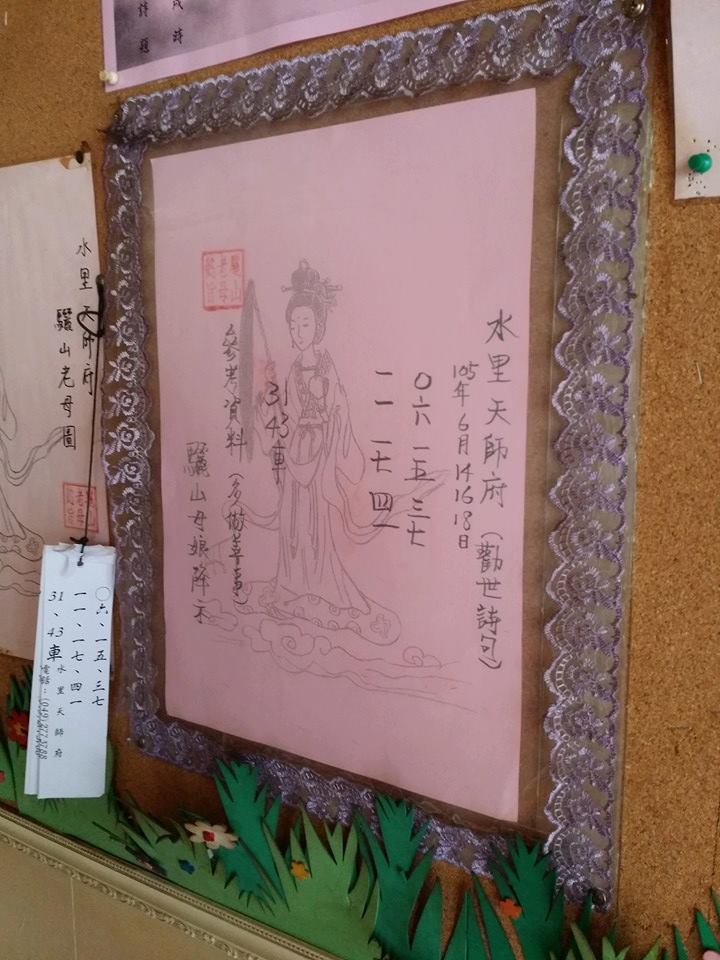 水里天師府(勸世詩句)
105年6月14 16 18日
〇六 一五 三七
一一 一七 四一
31 43車
參考資料(多做善事)
驪山母娘降示
驪山
老母
水里天師府
驪山老母圖
〇六、一五、三七
一一、一七、四一
31、43車
水里天師府
電話: